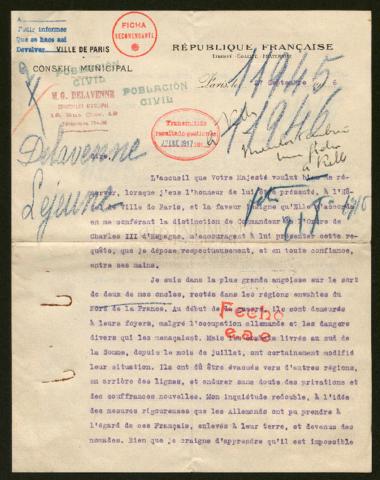 Pedir informes
Que se hace así
Devolver
FICHA
REEMPLAZANTE
VILLE DE PARIS
RÉPUBLIQUE FRANÇAISE
LIBERTÉ - ÉGALITÉ - FRATERNITÉ
CONSEIL MUNICIPAL
POBLACIÓN
CIVIL
POBLACIÓN
CIVIL
M. G. DELAVENNE
CONSEILLER MUNICIPAL
Paris, le 27 Septembre 1916
11945
11946
Transmitido
resultado gestiones
1917
Delavenne
Lejeune
Sire,
L'accueil que Votre Majesté voulut bien me ré-
server, lorsque j'eus l'honneur de lui être présenté, à l'Hô-
tel de Ville de Paris, et la faveur insigne qu'Elle m'accorda
en me conférant la distinction de Commandeur de l'Ordre de
Charles III d'Espagne, m'encouragent à lui présenter cette re-
quête, que je dépose respectueusement, et en toute confiance,
entre ses mains.
Je suis dans la plus grande angoisse sur le sort
de deux de mes oncles, restés dans les régions envahies du
Nord de la France. Au début de la guerre, ils sont demeurés
à leurs foyers, malgré l'occupation allemande et les dangers
divers qui les menaçaient. Mais les combats livrés au sud de
la Somme, depuis le mois de juillet, ont certainement modifié
leur situation. Ils ont dû être évacués vers d'autres régions,
en arrière des lignes, et endurer sans doute des privations et
des souffrances nouvelles. Mon inquiétude redouble, à l'idée
des mesures rigoureuses que les Allemands ont pu prendre à
l'égard de ces Français, enlevés à leur terre, et devenus des
nomades. Bien que je craigne d'apprendre qu'il est impossible
Fecho
eae